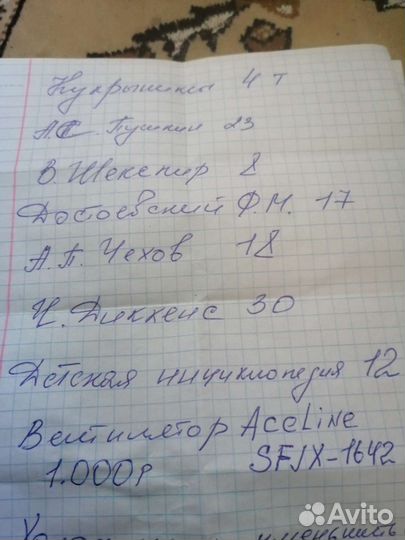 Кукрыниксы 4 т
А.С. Пушкин 23
В. Шекспир 8
Достоевский Ф.М. 17
А.П. Чехов 18
Ч. Диккенс 30
Детская инциклопедия 12
Вентилятор AceLine
1.000р SFJX-1642
уменьшить
Avito